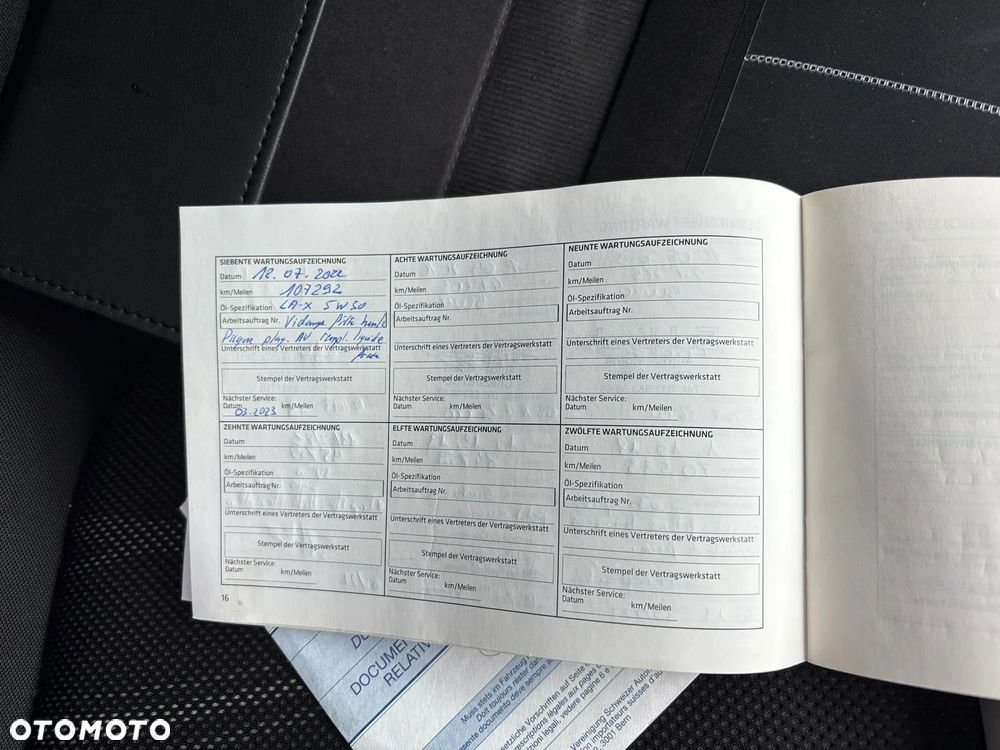 SIEBENTE WARTUNGSAUFZEICHNUNG
Datum 12.07.2022
km/Meilen 107292
Öl-Spezifikation LA-X 5W30
Arbeitsauftrag Nr. Vidange filtre
AV rempl. liquide
Unterschrift eines Vertreters der Vertragswerkstatt
Stempel der Vertragswerkstatt
Nächster Service:
Datum 03.2023 km/Meilen
ACHTE WARTUNGSAUFZEICHNUNG
Datum
km/Meilen
Öl-Spezifikation
Arbeitsauftrag Nr.
Unterschrift eines Vertreters der Vertragswerkstatt
Stempel der Vertragswerkstatt
Nächster Service:
Datum km/Meilen
NEUNTE WARTUNGSAUFZEICHNUNG
Datum
km/Meilen
Öl-Spezifikation
Arbeitsauftrag Nr.
Unterschrift eines Vertreters der Vertragswerkstatt
Stempel der Vertragswerkstatt
Nächster Service:
Datum km/Meilen
ZEHNTE WARTUNGSAUFZEICHNUNG
Datum
km/Meilen
Öl-Spezifikation
Arbeitsauftrag Nr.
Unterschrift eines Vertreters der Vertragswerkstatt
Stempel der Vertragswerkstatt
Nächster Service:
Datum km/Meilen
ELFTE WARTUNGSAUFZEICHNUNG
Datum
km/Meilen
Öl-Spezifikation
Arbeitsauftrag Nr.
Unterschrift eines Vertreters der Vertragswerkstatt
Stempel der Vertragswerkstatt
Nächster Service:
Datum km/Meilen
ZWÖLFTE WARTUNGSAUFZEICHNUNG
Datum
km/Meilen
Öl-Spezifikation
Arbeitsauftrag Nr.
Unterschrift eines Vertreters der Vertragswerkstatt
Stempel der Vertragswerkstatt
Nächster Service:
Datum km/Meilen
16
DOCUMEN
RELATIV
Muss stets im Fahrzeug
Doit toujours rester dan
presente documento deve sempre
setzliche Vorschriften auf Seite
escriptions légales aux pages 6
zioni legali, vedere pagine 6 e
Vereinigung Schweizer Autom
on importateurs suisses d'au
3001 Bern
OTOMOTO